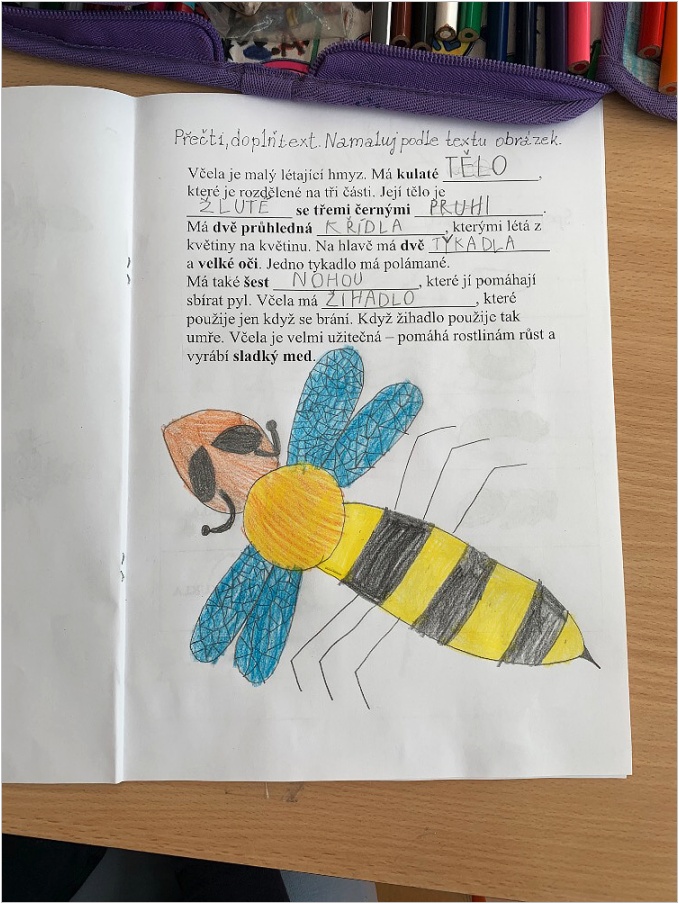 Přečti, doplň text. Namaluj podle textu obrázek.
Včela je malý létající hmyz. Má kulaté TĚLO,
které je rozdělené na tři části. Její tělo je
ŽLUTÉ se třemi černými PRUHI.
Má dvě průhledná KŘÍDLA, kterými létá z
květiny na květinu. Na hlavě má dvě TYKADLA
a velké oči. Jedno tykadlo má polámané.
Má také šest NOHOU, které jí pomáhají
sbírat pyl. Včela má ŽIHADLO, které
použije jen když se brání. Když žihadlo použije tak
umře. Včela je velmi užitečná – pomáhá rostlinám růst a
vyrábí sladký med.